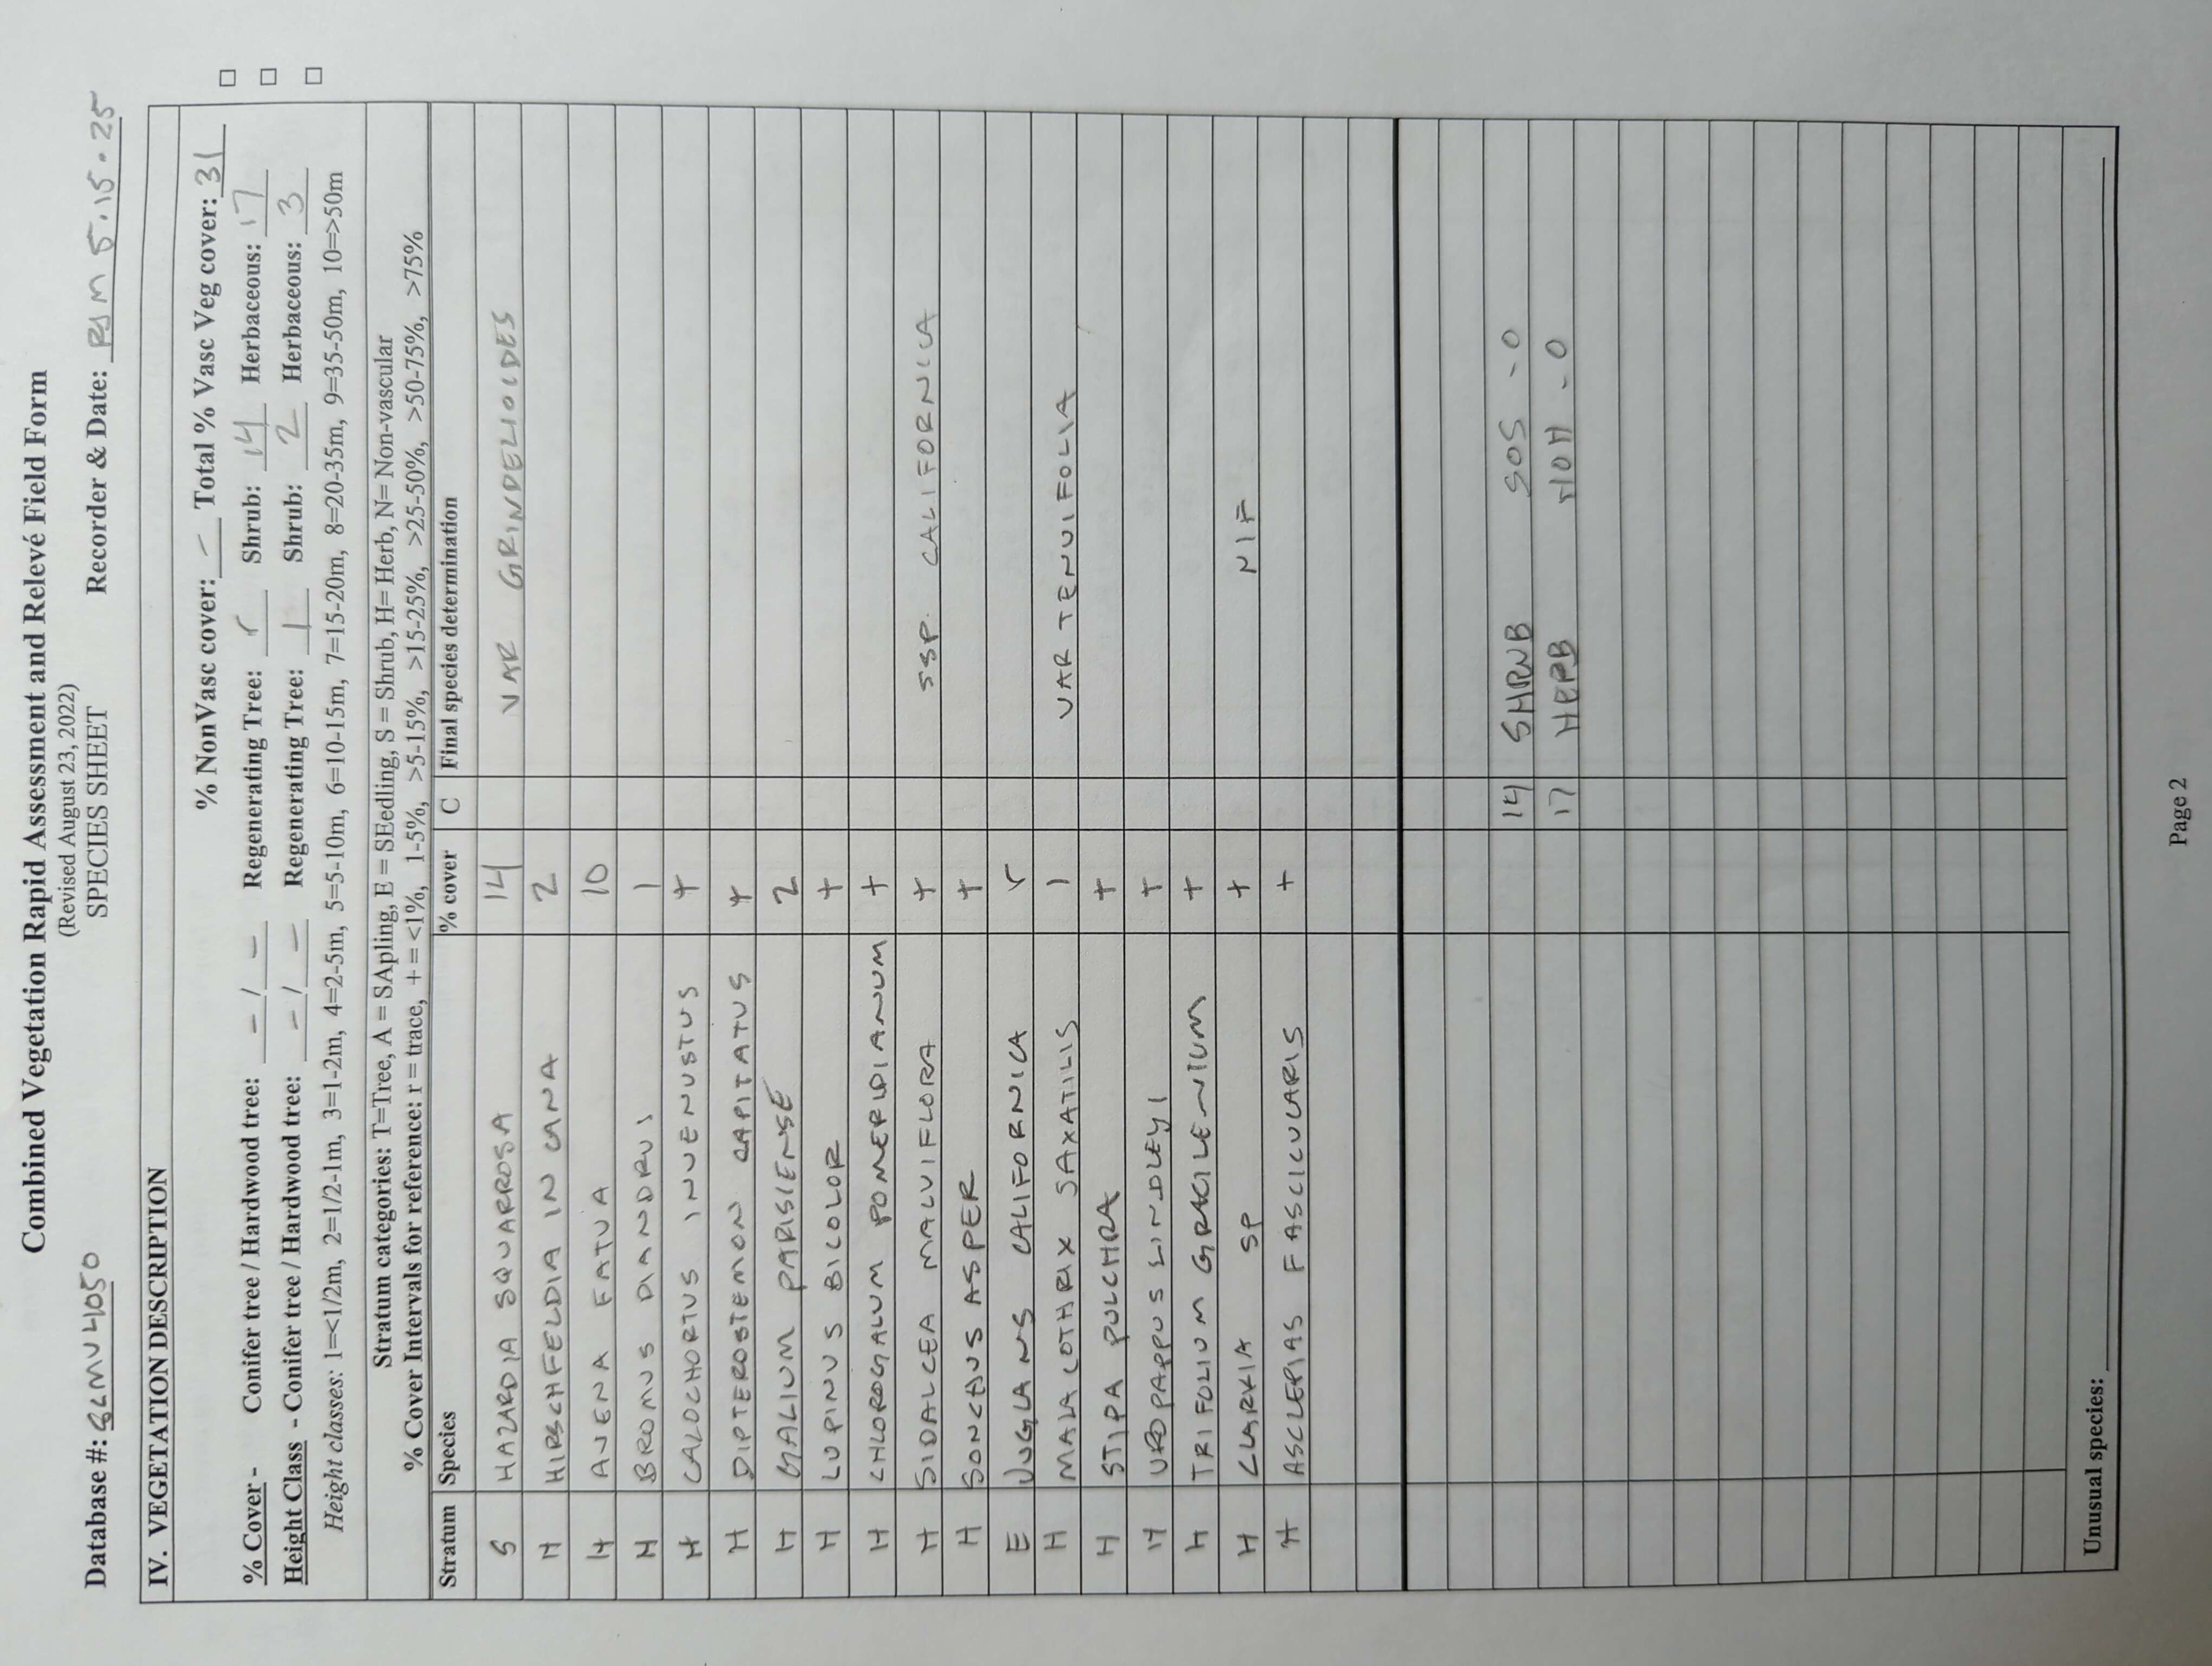 Combined Vegetation Rapid Assessment and Relevé Field Form
(Revised August 23, 2022)
SPECIES SHEET
Database #: SLMU4050 Recorder & Date: RJM 5.15.25
IV. VEGETATION DESCRIPTION
% NonVasc cover: - Total % Vasc Veg cover: 31
% Cover - Conifer tree / Hardwood tree: - / - Regenerating Tree: r Shrub: 14 Herbaceous: 17
Height Class - Conifer tree / Hardwood tree: - / - Regenerating Tree: 1 Shrub: 2 Herbaceous: 3
Height classes: 1=<1/2m, 2=1/2-1m, 3=1-2m, 4=2-5m, 5=5-10m, 6=10-15m, 7=15-20m, 8=20-35m, 9=35-50m, 10=>50m
Stratum categories: T=Tree, A = SApling, E = SEedling, S = Shrub, H= Herb, N= Non-vascular
% Cover Intervals for reference: r = trace, + = <1%, 1-5%, >5-15%, >15-25%, >25-50%, >50-75%, >75%
Stratum Species % cover C Final species determination
S HAZARDIA SQUARROSA 14 VAR GRINDELIOIDES
H HIRSCHFELDIA INCANA 2
H AVENA FATUA 10
H BROMUS DIANDRUS 1
H CALOCHORTUS INVENUSTUS +
H DIPTEROSTEMON CAPITATUS +
H GALIUM PARISIENSE 2
H LUPINUS BICOLOR +
H CHLOROGALUM POMERIDIANUM +
H SIDALCEA MALVIFLORA + SSP. CALIFORNICA
H SONCHUS ASPER +
E JUGLANS CALIFORNICA r
H MALACOTHRIX SAXATILIS 1 VAR TENUIFOLIA
H STIPA PULCHRA +
H UROPAPPUS LINDLEYI +
H TRIFOLIUM GRACILENTUM +
H CLARKIA SP + NIF
H ASCLEPIAS FASCICULARIS +
14 SHRUB SOS - 0
17 HERB NOH - 0
Unusual species:
Page 2